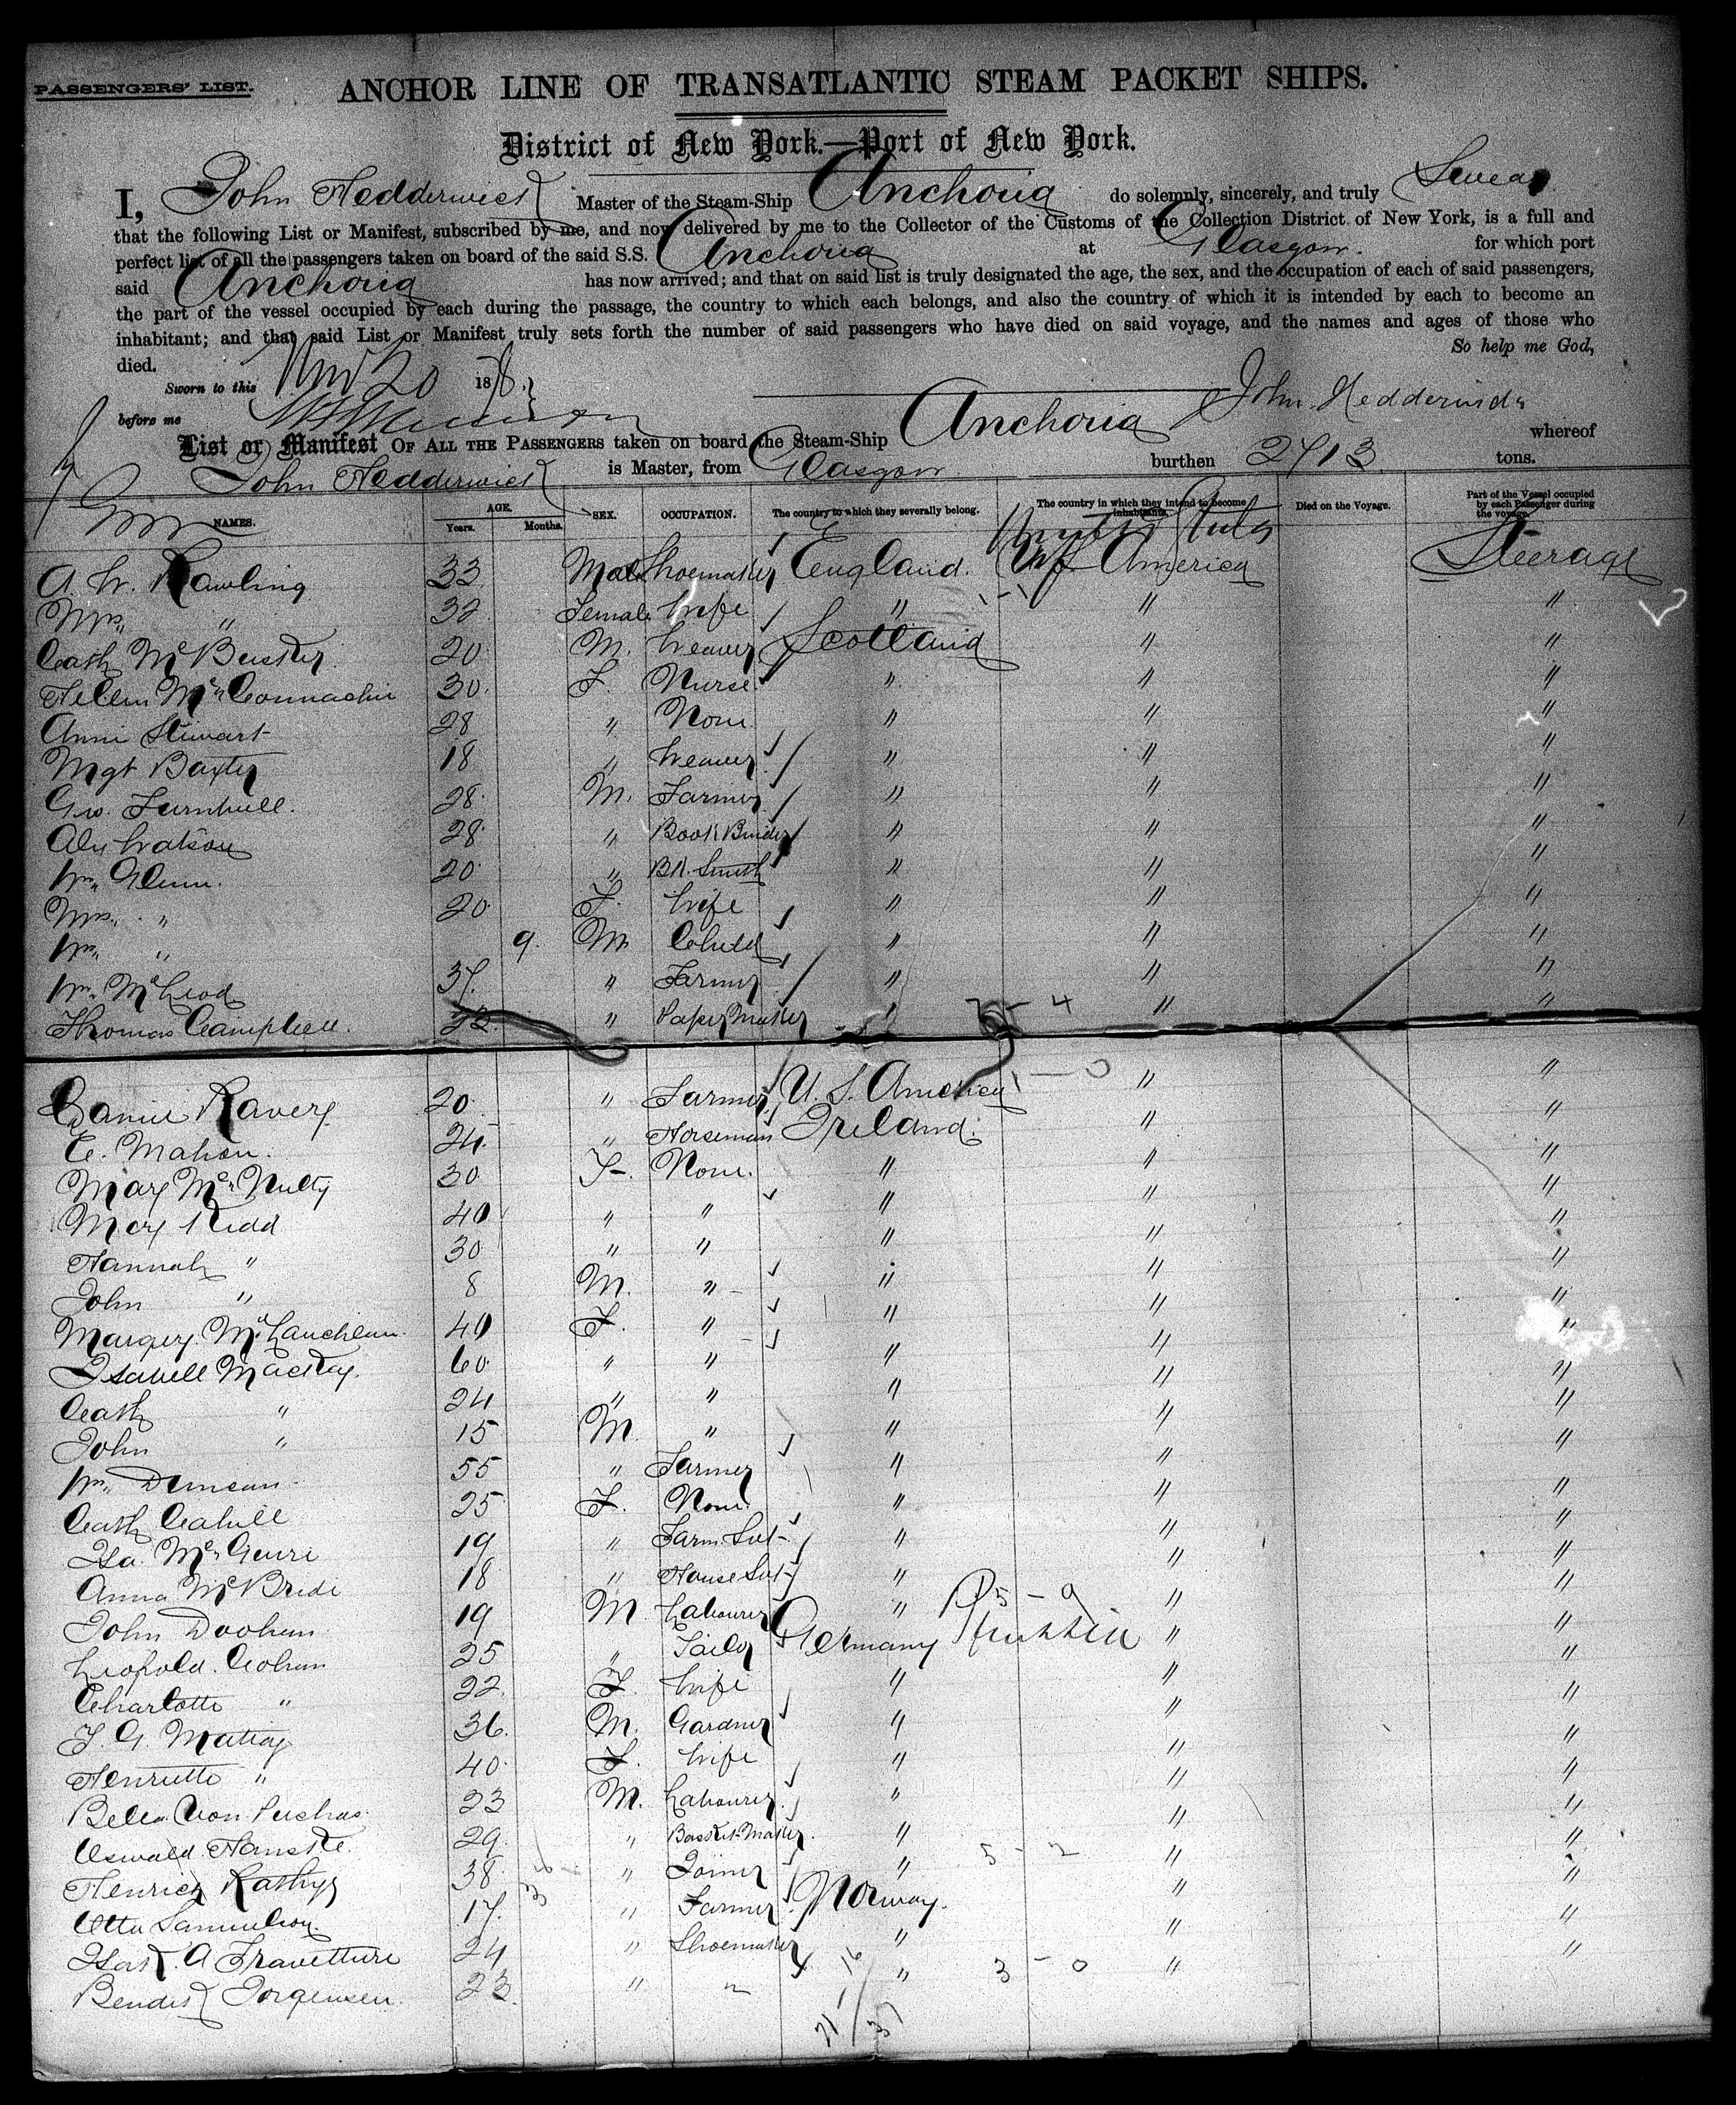 PASSENGERS' LIST.
ANCHOR LINE OF TRANSATLANTIC STEAM PACKET SHIPS.
District of New York.—Port of New York.
I, John Hedderwick Master of the Steam-Ship Anchoria do solemnly, sincerely, and truly Swear
that the following List or Manifest, subscribed by me, and now delivered by me to the Collector of the Customs of the Collection District of New York, is a full and
perfect list of all the passengers taken on board of the said S.S. Anchoria at Glasgow. for which port
said Anchoria has now arrived; and that on said list is truly designated the age, the sex, and the occupation of each of said passengers,
the part of the vessel occupied by each during the passage, the country to which each belongs, and also the country of which it is intended by each to become an
inhabitant; and that said List or Manifest truly sets forth the number of said passengers who have died on said voyage, and the names and ages of those who
died. So help me God,
Sworn to this Nov 20 1878.
before me John Hedderwick
List or Manifest OF ALL THE PASSENGERS taken on board the Steam-Ship Anchoria whereof
John Hedderwick is Master, from Glasgow. burthen 2713 tons.
NAMES. AGE. Years. Months. SEX. OCCUPATION. The country to which they severally belong. The country in which they intend to become inhabitants. Died on the Voyage. Part of the Vessel occupied by each Passenger during the voyage.
United States
A. W. Rawling 33 Male Shoemaker England. Of America Steerage
Mrs. " 32 Female Wife " " "
Cath McBuster 20 M. Weaver Scotland " "
Hellen McConnachie 30. F. Nurse " " "
Annie Stewart 28 " None " " "
Mgt Baxter 18 " Weaver " " "
Geo. Turnbull. 28 M. Farmer " " "
Alex Watson 28 " Book Binder " " "
Wm. Glenn. 20 " Bk. Smith " " "
Mrs. " 20 F. Wife " " "
Wm. " 9. M Child " " "
Wm. McLeod 37. " Farmer " " "
Thomas Campbell. 22. " Papermaker " " "
7 - 4
Daniel Ravery 20. " Farmer U. S. America " "
1 - 0
E. Mahon. 24. " Horseman Ireland. " "
Mary McNulty 30 F. None. " " "
Mary Kidd 40 " " " " "
Hannah " 30 " " " " "
John " 8 M. " " " "
Margery McLauchlan. 40 F. " " " "
Isabell Mackay. 60 " " " " "
Cath " 24 " " " " "
John " 15 M " " " "
Wm. Duncan 55 " Farmer " " "
Cath Cahill 25 F. None " " "
Isa. McGuire 19 " Farm Svt " " "
Anna McBride 18 " House Svt " " "
John Doohan 19 M Labourer " " "
5 - 9
Leopold Cohen 25 " Tailor Germany Prussia " "
Charlotte " 22 F. Wife " " "
F. G. Matiay 36. M. Gardner " " "
Henriette " 40. F. Wife " " "
Bella Von Puchas 23 M. Labourer " " "
Oswald Hanske. 29. " Basket Maker. " " "
Henrich Rathys 38 " Joiner " " "
5 - 2
Otto Samuelson. 17. " Farmer Norway. " "
Isak. A Travetture 24 " Shoemaker " " "
Bendik Jorgensen. 23. " " " " "
3 - 0
16
21
37